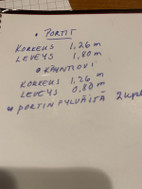 • PORTIT
KORKEUS 1,26 m
LEVEYS 1,80 m
• KÄYNTIOVI
KORKEUS 1,26 m
LEVEYS 0,80 m
PORTIN PYLVÄITÄ 2 kpl